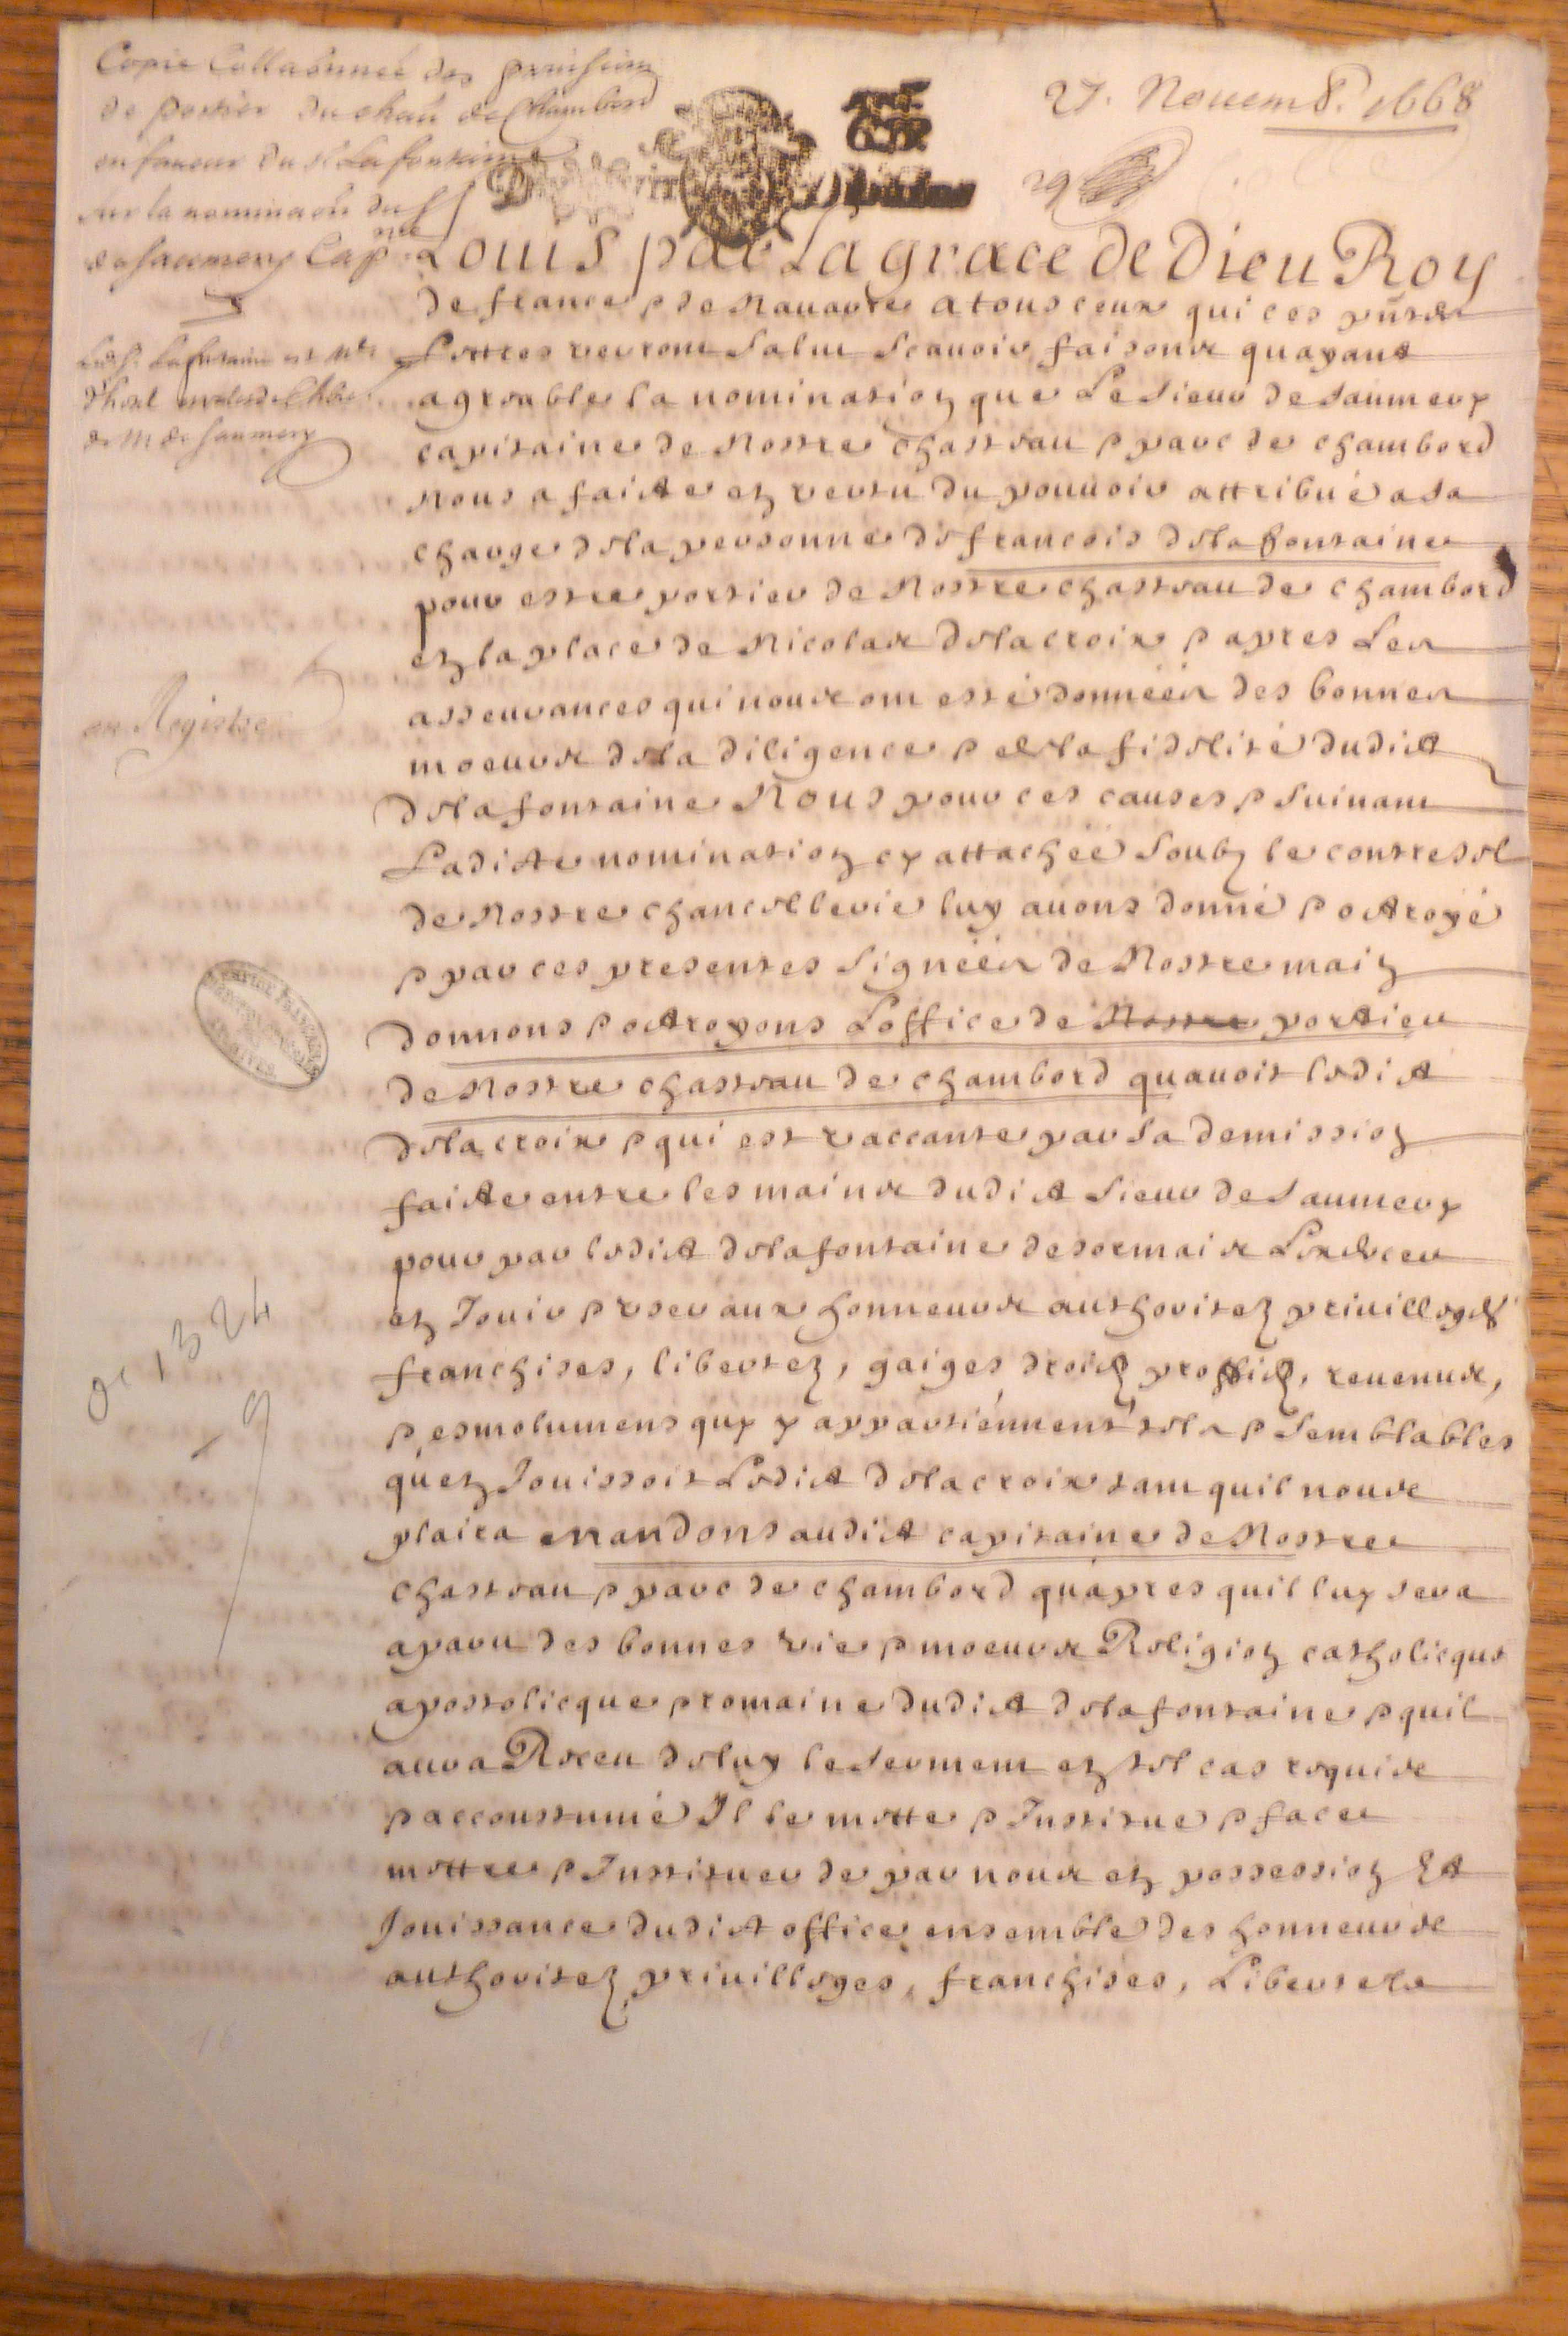 Copie Collationnée des provisions
de portier du chau de Chambord
en faueur du sr Lafontaine
sur la nominaon du sr
de Saumery Capne
27. Nouemb. 1668
29
Louis par La grace de Dieu Roy
de france & de Nauarre a tous ceux qui ces pntes
Lettres verront Salut Scauoir faisons quayant
agreable la nomination que Le Sieur de Saumery
capitaine de Nostre chasteau & parc de chambord
Nous a faicte en vertu du pouuoir attribué a sa
charge de la personne de francois de la fontaine
pour estre portier de Nostre chasteau de chambord
en la place de Nicolas de la croix & apres Les
asseurances qui nous ont esté données des bonnes
moeurs de la diligence & de la fidelité dudict
de la fontaine Nous pour ces causes & suiuant
Ladicte nomination cy attachée Soubz le contresel
de Nostre chancellerie luy auons donné & octroyé
& par ces presentes signées de Nostre main
donnons & octroyons Loffice de Nostre portier
de Nostre chasteau de chambord quauoit ledict
de la croix & qui est vaccante par sa demission
faicte entre les mains dudict Sieur de Saumery
pour par ledict de la fontaine desormais Lexercer
en Jouir & vser aux honneurs authoritez priuilleges
franchises, libertez, gaiges droictz proffictz, reuenus,
& esmolumens quy y appartiennent tels & semblables
quen Jouissoit Ledict de la croix tant quil nous
plaira mandons audict capitaine de Nostre
chasteau & parc de chambord quapres quil luy sera
aparu des bonnes vie & moeurs Religion catholicque
apostolicque & romaine dudict de la fontaine & quil
aura Receu de luy le serment en tel cas requis
& accoustumé Il le mette & Institue & face
mettre & Instituer de par nous en possession Et
Jouissance dudict office ensemble des honneurs
authoritez priuilleges, franchises, Libertes
Led. sr Lafontaine est Me
dhostel
de M. de Saumery
au Registre
O1 1324
9